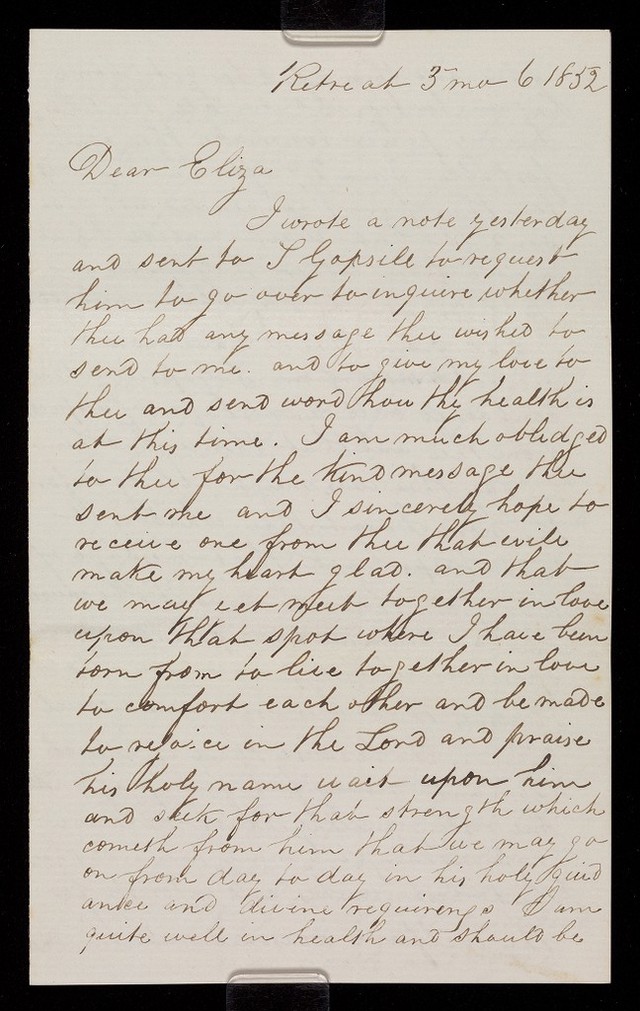 Retreat 3 mo 6 1852
Dear Eliza
I wrote a note yesterday
and sent to I Gopsill to request
him to go over to inquire whether
thee had any message thee wished to
send to me. and to give my love to
thee and send word how thy health is
at this time. I am much obledged
to thee for the kind message thee
sent me and I sincerely hope to
receive one from thee that will
make my heart glad. and that
we may yet meet together in love
upon that spot where I have been
torn from to live together in love
to comfort each other and be made
to rejoice in the Lord and praise
his holy name wait upon him
and seek for that strength which
cometh from him that we may go
on from day to day in his holy guid
ance and divine requirings I am
quite well in health and should be